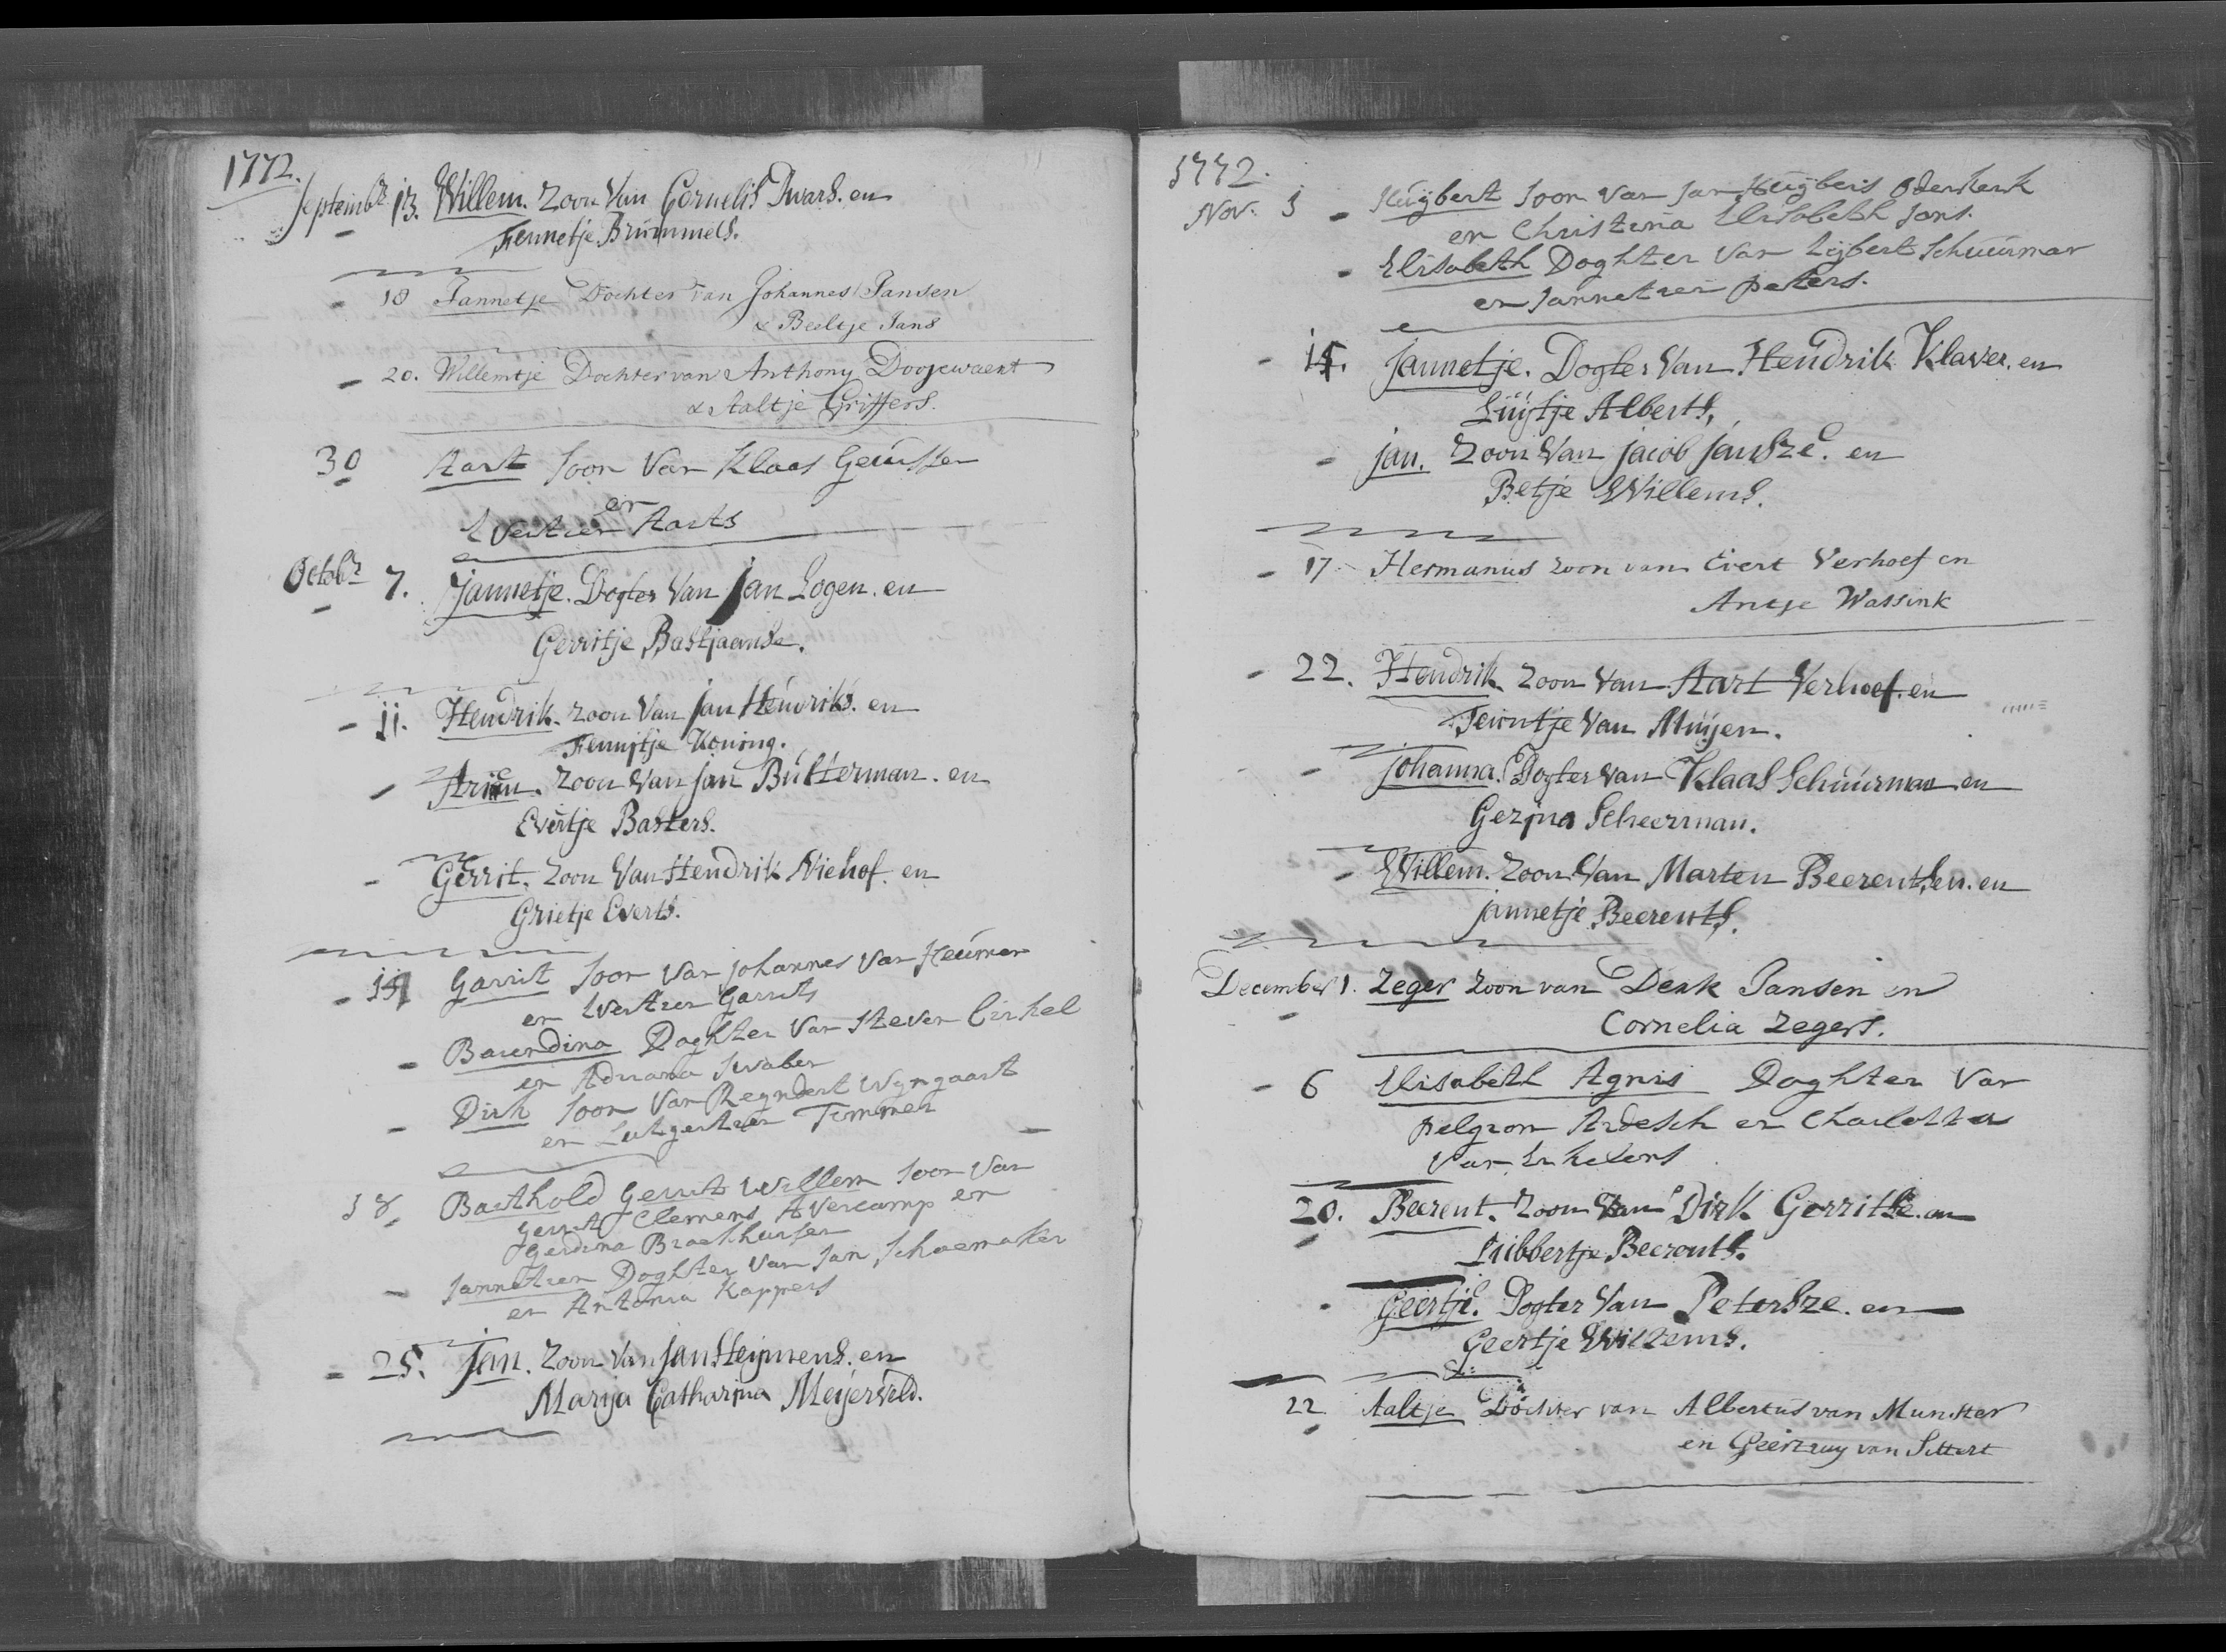 1772.
Septembr 13. Willem. Zoon Van Cornelis Dwars. en
Fennetje Brummels.
- 18 Jannetje Dochter van Johannes Jansen
& Beeltje Jans
- 20. Willemtje Dochter van Anthony Doojewaert
& Aaltje Griffers.
30 Aart Soon Van Klaas Geurssen
en
Evertien Aarts
Octobr 7. Jannetje. Dogter Van Jan Logen. en
Gerritje Bastjaanse.
- 11. Hendrik. Zoon Van Jan Hendriks. en
Fennitje Koning.
- Ariën. Zoon Van Jan Butterman. en
Evertje Basters.
- Gerrit. Zoon Van Hendrik Niehof. en
Grietje Everts.
- 14 Garrit Soon Van Johannes Van Heumen
en Evertien Garrits
- Barendina Doghter Van Steven Cirkel
en Adriana Swaben
- Dirk Soon Van Reyndert Wyngaart
en Lutgertien Timmer
18 Barthold Gerrit Willem Soon Van
Gerrit Clemens Avercamp en
Gerdina Broekhuisen
- Jannetien Doghter Van Jan Schoemaker
en Antonia Kappers
- 25. Jan. Zoon Van Jan Heijmens. en
Marija Catharina Meijerveld.
1772.
Nov. 1 - Huijbert Soon Van Jan Huijberts Odenkerk
en Christina Elisabeth Jans.
- Elisabeth Doghter Van Lijbert Schuurman
en Jannetien peters.
- 15. Jannetje. Dogter Van Hendrik Klaver. en
Luijtje Alberts,
- Jan. Zoon Van Jacob Jansze. en
Betje Willems.
- 17 Hermanus zoon van Evert Verhoef en
Antje Wassink
- 22. Hendrik. Zoon Van Aart Verhoef. en
Teuntje Van Muijen.
- Johanna. Dogter Van Klaas Schuurman en
Gezina Scheerman.
- Willem. Zoon Van Marten Beerentsen. en
Jannetje Beerents.
December 1. Zeger zoon van Derk Jansen en
Cornelia Zegers.
- 6 Elisabeth Agnis Doghter Van
pelgrom Ardesch en Charlotte
Van Enkelens
20. Beerent. Zoon Van Dirk Gerritse. en
Lubbertje Beerents.
- Geertje. Dogter Van Petersze. en
Geertje Willems.
22 Aaltje Dochter van Albertus van Munster
en Geertruy van Sittert